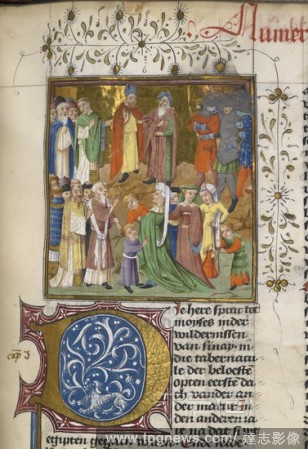 Numer
cap 3
ie here sprac tot
moises inder
wildernissen
van sinay in
die tabernacu
le der beloefte
opten eerste dach
den anderen ia
re na dat si
egipten
www.tpgnews.com/達志影像